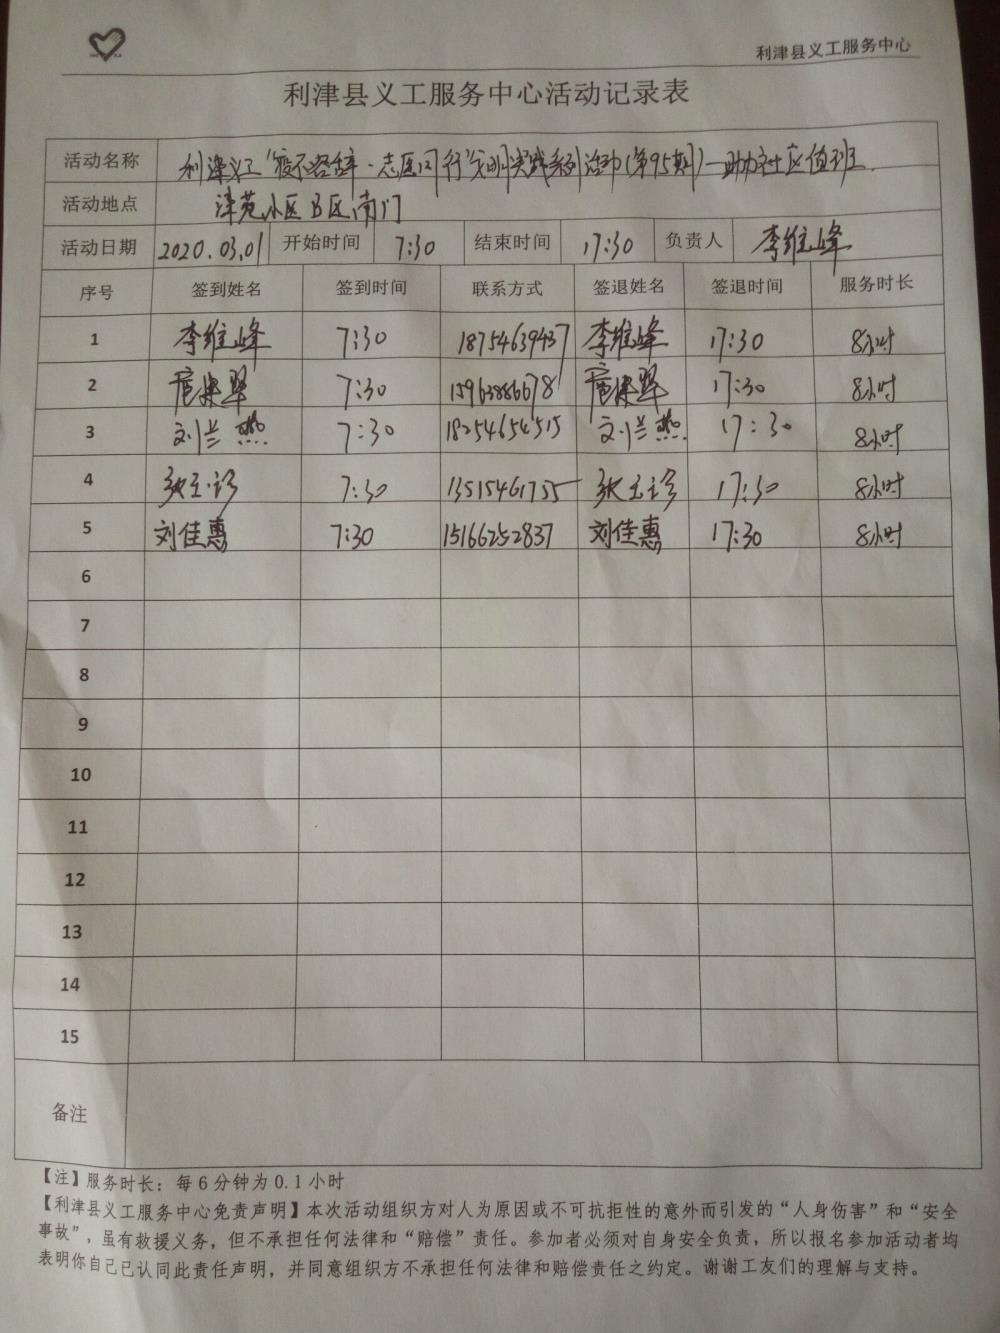 利津县义工服务中心
利津县义工服务中心活动记录表
活动名称 利津义工"疫不容辞·志愿同行"文明实践系列活动(第95期)—助力社区值班
活动地点 津苑小区B区南门
活动日期 2020.03.01 开始时间 7:30 结束时间 17:30 负责人 李维峰
序号 签到姓名 签到时间 联系方式 签退姓名 签退时间 服务时长
1 李维峰 7:30 18754639437 李维峰 17:30 8小时
2 7:30 15963886678 17:30 8小时
3 刘兰燕 7:30 18254654515 刘兰燕 17:30 8小时
4 张玉珍 7:30 13515461755 张玉珍 17:30 8小时
5 刘佳惠 7:30 15166252837 刘佳惠 17:30 8小时
6
7
8
9
10
11
12
13
14
15
备注
【注】服务时长：每6分钟为0.1小时
【利津县义工服务中心免责声明】本次活动组织方对人为原因或不可抗拒性的意外而引发的“人身伤害”和“安全
事故”，虽有救援义务，但不承担任何法律和“赔偿”责任。参加者必须对自身安全负责，所以报名参加活动者均
表明你自己已认同此责任声明，并同意组织方不承担任何法律和赔偿责任之约定。谢谢工友们的理解与支持。